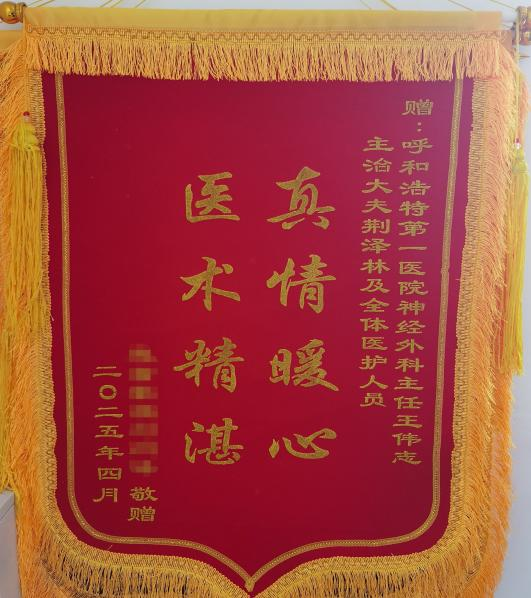 赠：呼和浩特第一医院神经外科主任王伟志
主治大夫荆泽林及全体医护人员
真情暖心
医术精湛
敬赠
二〇二五年四月